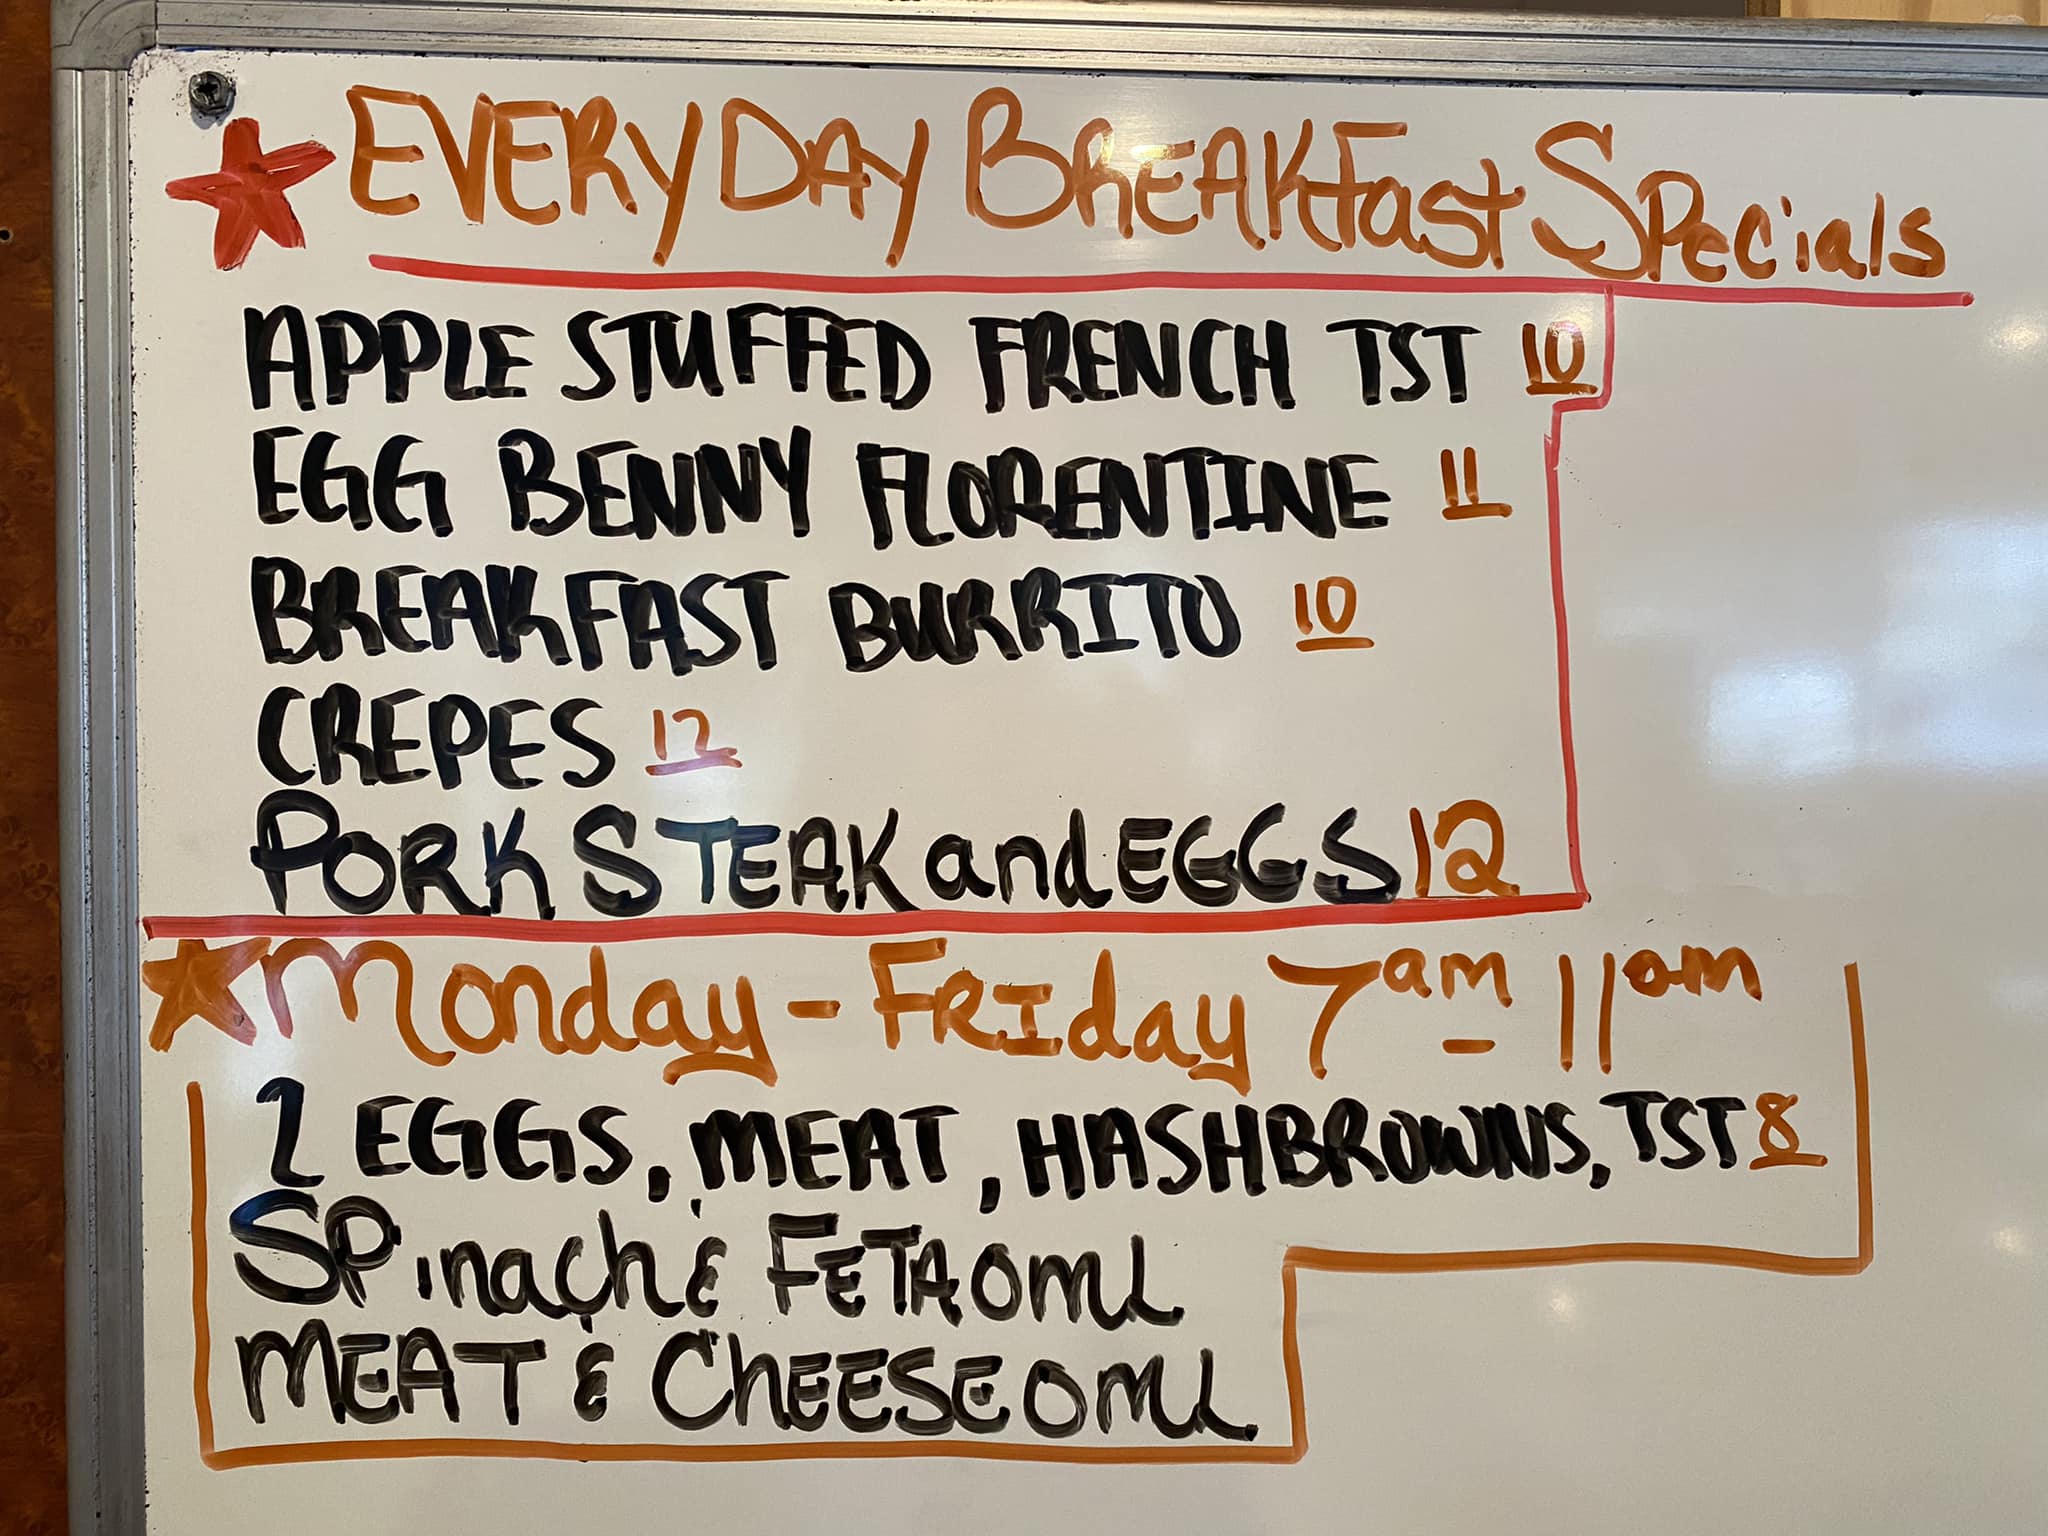 EVERYDAY BREAKFast SPecials
APPLE STUFFED FRENCH TST 10
EGG BENNY FLORENTINE 11
BREAKFAST BURRITO 10
CREPES 12
PORK STEAK and EGGS 12
Monday - FRIday 7am - 11am
2 EGGS, MEAT, HASHBROWNS, TST 8
SPinach & FETA OML
MEAT & ChEESE OML